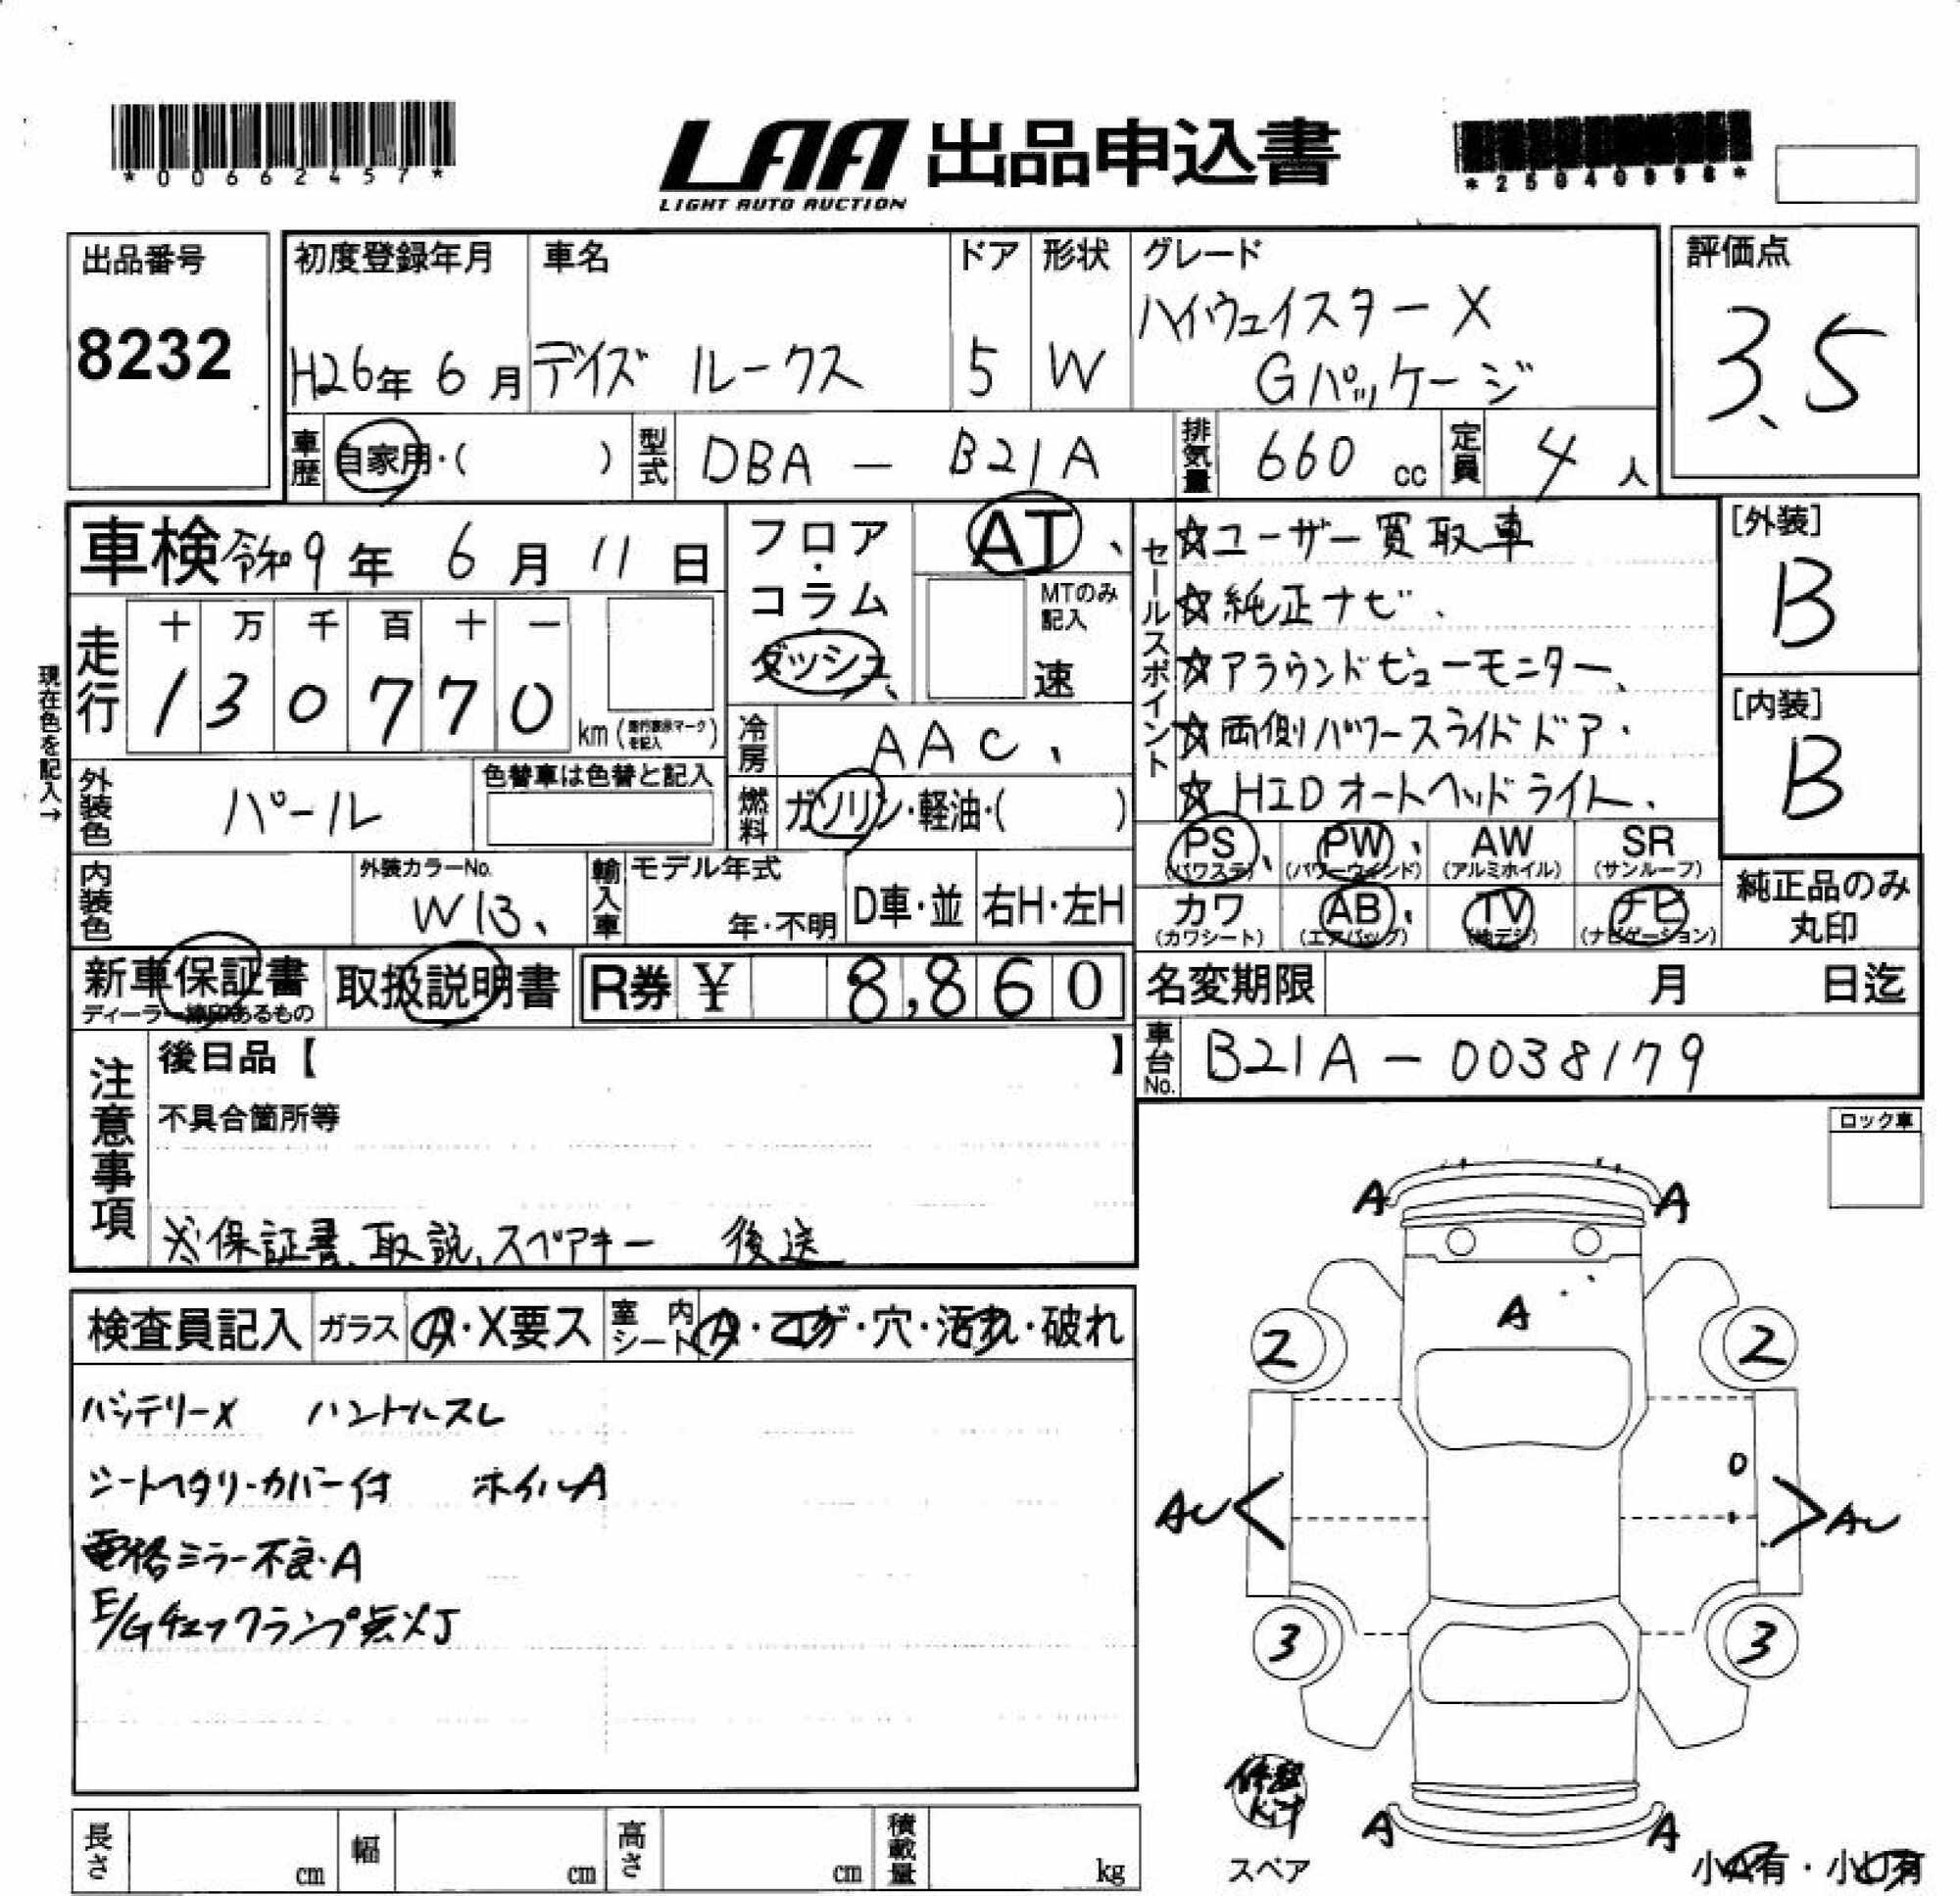 *00662457*
LAA 出品申込書
LIGHT AUTO AUCTION
出品番号
8232
初度登録年月
H26年 6月
車名
デイズ ルークス
ドア
5
形状
W
グレード
ハイウェイスター X
Gパッケージ
評価点
3.5
車歴 自家用・( )
型式 DBA - B21A
排気量 660 cc
定員 4 人
車検 令和9年 6月 11日
フロア・コラム
ダッシュ
AT
MTのみ記入
速
走行
十 万 千 百 十 一
1 3 0 7 7 0 km
現在色を記入→
冷房 AAC
外装色 パール
色替車は色替と記入
燃料 ガソリン・軽油・( )
内装色
外装カラーNo.
W13
輸入車
モデル年式
年・不明
D車・並
右H・左H
セールスポイント
☆ユーザー買取車
☆純正ナビ
☆アラウンドビューモニター
☆両側パワースライドドア
☆HIDオートヘッドライト
[外装]
B
[内装]
B
PS (パワステ)
PW (パワーウインド)
AW (アルミホイル)
SR (サンルーフ)
カワ (カワシート)
AB (エアバッグ)
TV (地デジ)
ナビ (ナビゲーション)
純正品のみ
丸印
新車保証書
取扱説明書
R券 ¥ 8,860
名変期限 月 日迄
車台No. B21A-0038179
注意事項
後日品【 】
不具合箇所等
※保証書、取説、スペアキー 後送
ロック車
検査員記入
ガラス
A・X要ス
室内シート
A・コゲ・穴・汚れ・破れ
バッテリーX ハンドルスレ
シートヘタリ・カバー付 ホイルA
電格ミラー不良・A
E/Gチェックランプ点灯
A A
A
2 2
AU AU
3 3
A A
修理
kit
スペア
小A有・小U有
長さ cm
幅 cm
高さ cm
積載量 kg